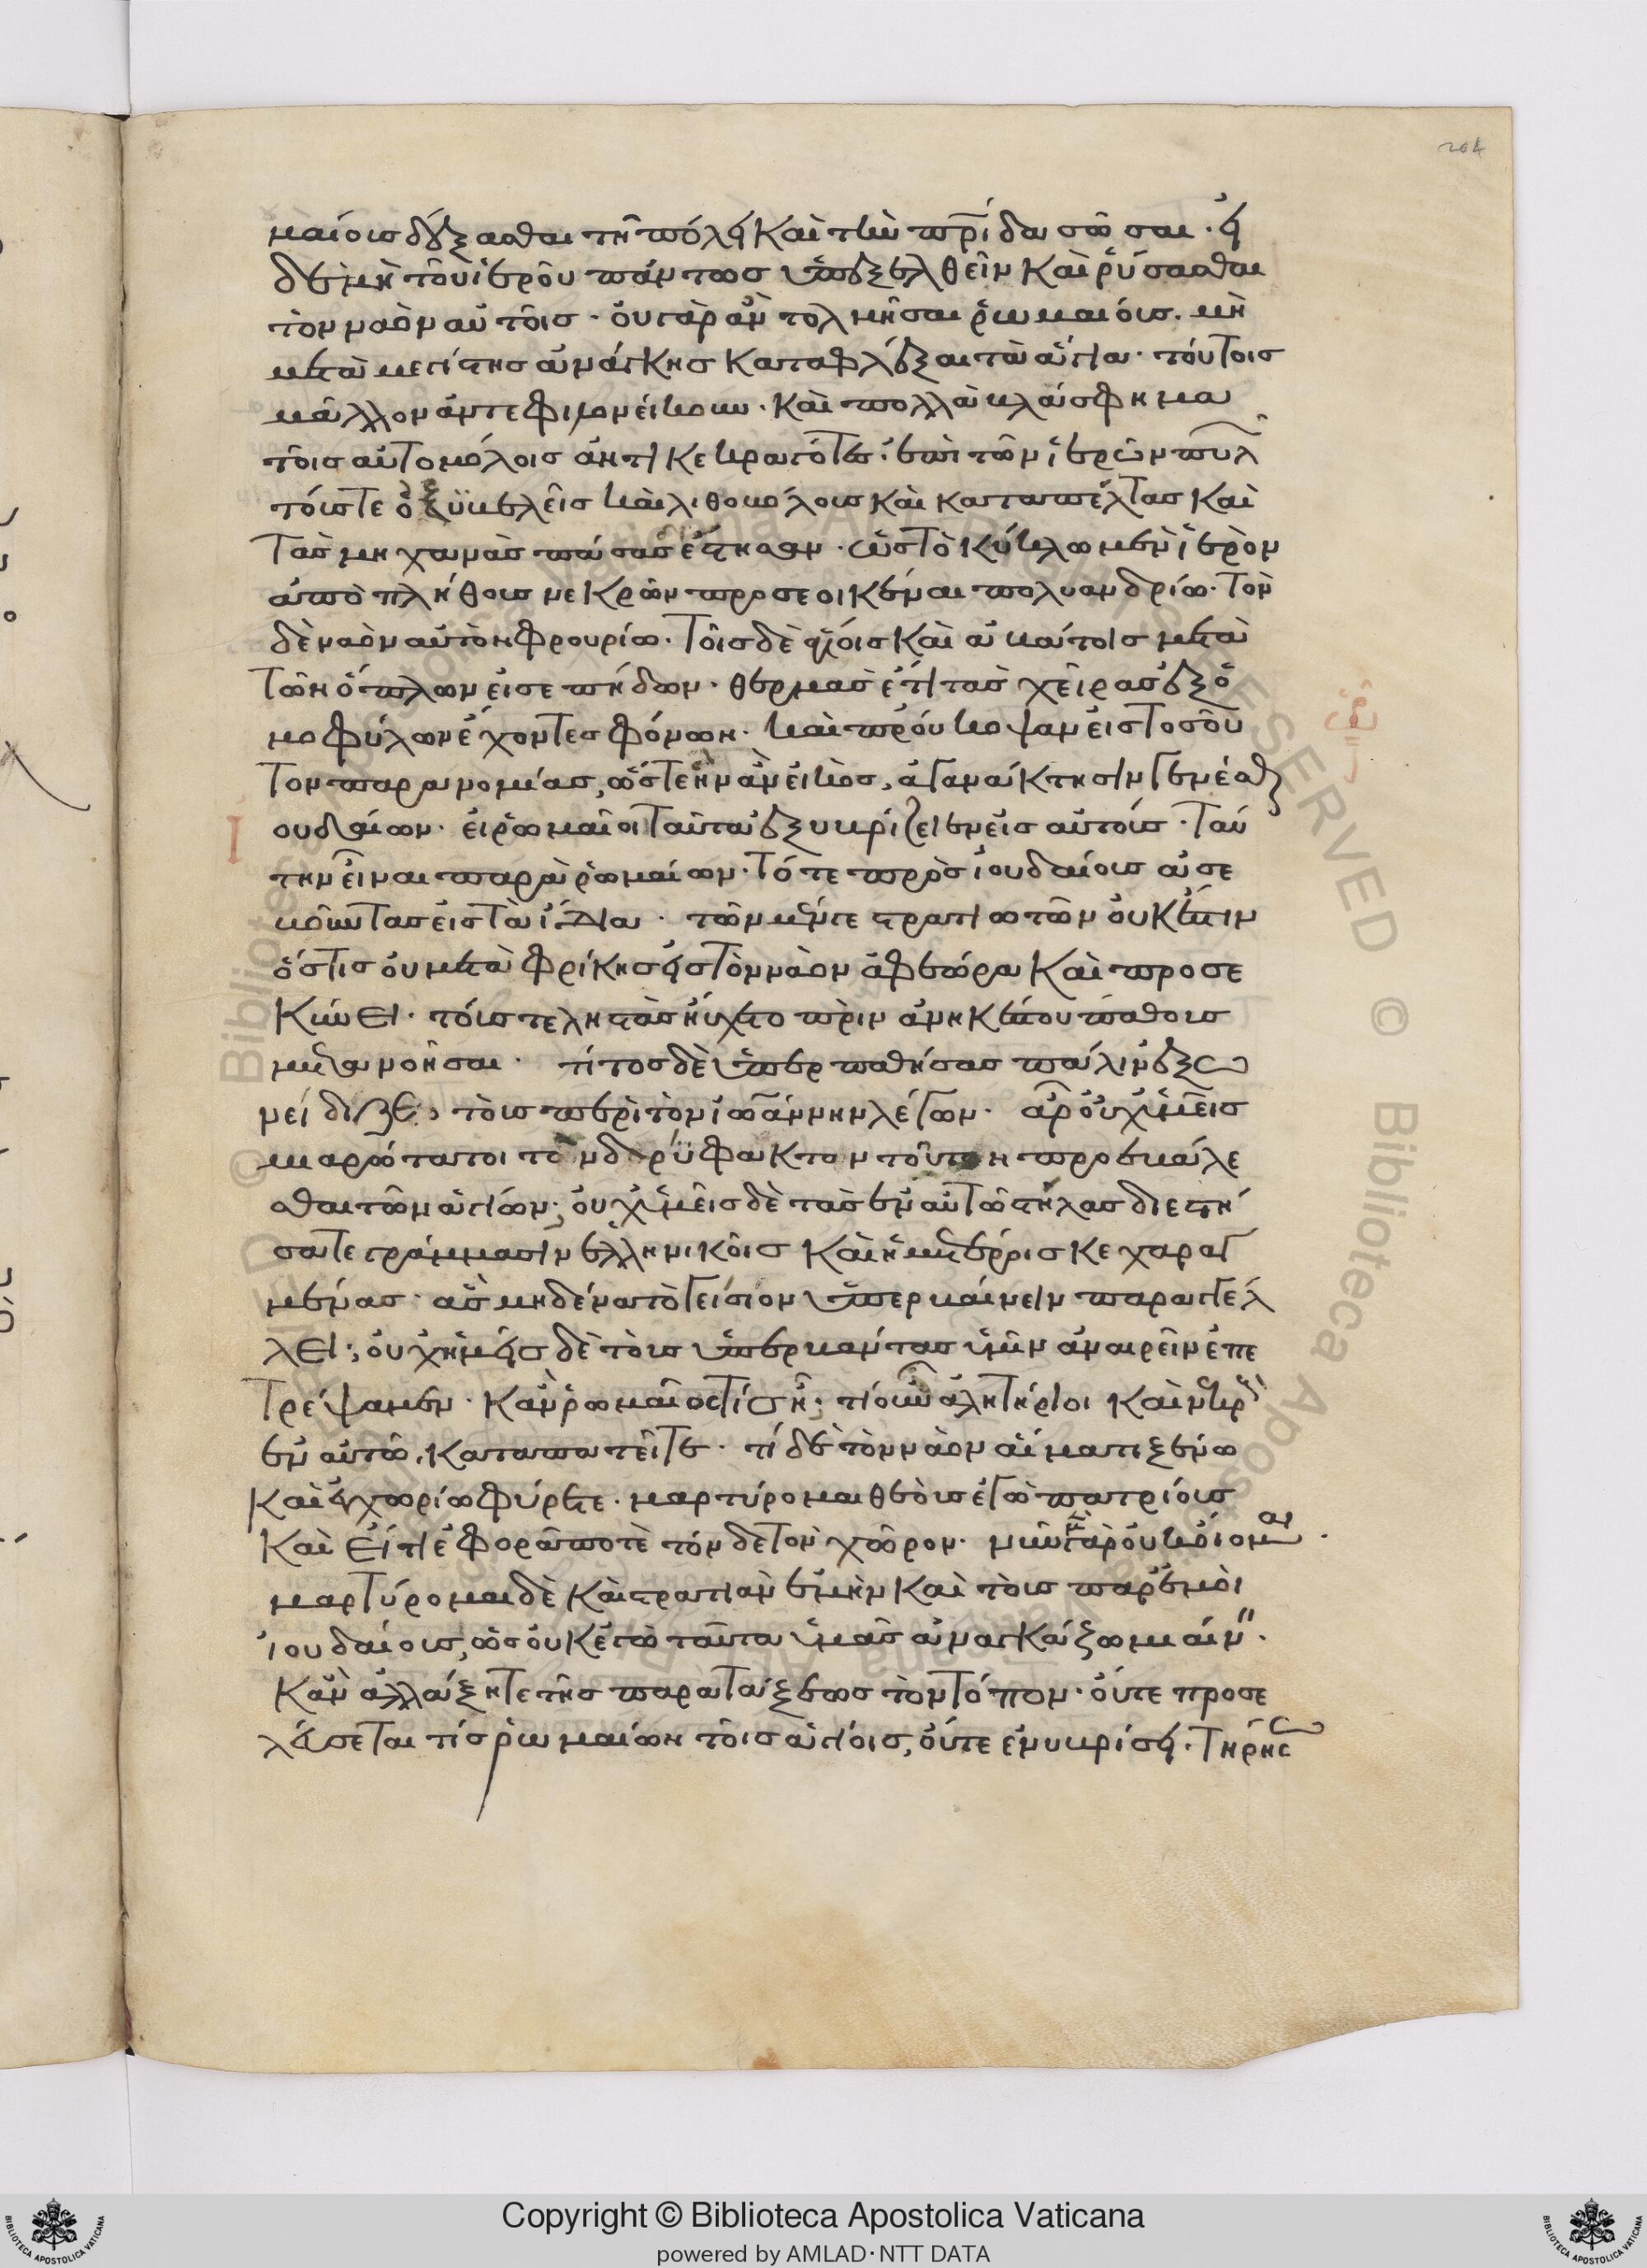 204
μαίους δέξασθαι τῆ πόλει καὶ τὴν πρίδα σῶσαι· εἰ
δὲ μὴ τοῦ ἱεροῦ πάντως ὑπεξελθεῖν καὶ ῥύσασθαι
τὸν ναὸν αὐτοῖς· οὐ γὰρ ἂν τολμῆσαι ῥωμαίους· μὴ
μετὰ μεγίστης ἀνάγκης καταφλέξαι τὰ ἅγια· τούτοις
μᾶλλον ἀντεφιλονείκουν· καὶ πολλὰ βλάσφημα
τοῖς αὐτομόλοις ἀντικεκραγότες· ἐπὶ τῶν ἱερῶν πυλ
τούς τε ὀξυβελεῖς καὶ λιθοβόλους καὶ καταπέλτας καὶ
τὰς μηχανὰς πάσας ἔστησαν· ὡς τὸ κύκλω μὲν ἱερὸν
ἀπὸ πλήθους νεκρῶν προσεοικέναι πολυανδρίω· τὸν
δὲ ναὸν αὐτὸν φρουρίω· τοῖς δὲ ἁγίοις καὶ ἀβάτοις μετὰ
τῶν ὅπλων εἰσεπήδων· θερμὰς ἔτι τὰς χεῖρας ἐξ ὁ
μοφύλων ἔχοντες φόνων· καὶ προύκοψαν εἰς τοσοῦ
τον παρανομίας, ὥστε ἣν ἂν εἰκὸς, ἀγανάκτησιν γενέσθ
ουδαίων· εἰ ῥωμαῖοι ταῦτα ἐξυβρίζειεν εἰς αὐτούς· ταύ
την εἶναι παρὰ ῥωμαίων· τότε πρὸς ἰουδαίους ἀσε
βοῦντας εἰς τὰ ἴδια· τῶν μέν γε στρατιωτῶν οὐκ ἔστιν
ὅστις οὐ μετὰ φρίκης εἰς τὸν ναὸν ἀφεώρα καὶ προσε
κύνει· τούς τε ληστὰς ηὔχετο πρὶν ἀνηκέστου πάθους
μετανοῆσαι· τίτος δὲ ὑπερπαθήσας πάλιν ἐξω
νείδιζε τοὺς περὶ τὸν ἰωάννην λέγων· ἆρ' οὐχ ὑμεῖς
μιαρώτατοι τὸν δορύφακτον τοῦτον προσβάλε
σθαι τῶν ἁγίων; οὐχ ὑμεῖς δὲ τὰς ἐν αὐτῶ στήλας διεστή
σατε γράμμασιν ἑλληνικοῖς καὶ ἡμετέροις κεχαραγ
μένας· ἃς μηδένα τὸ γείσιον ὑπερβαίνειν παραγγέλ
λει; οὐχ ἡμεῖς δὲ τοὺς ὑπερβάντας ὑμῖν ἀναιρεῖν ἐπε
τρέψαμεν· κἂν ῥωμαῖός τίς ᾖ· τί οὖν ἀλητήριοι καὶ νεκρ
ἐν αὐτῶ καταπατεῖτε· τί δὲ τὸν ναὸν αἵματι ξένω
καὶ ἐγχωρίω φύρετε· μαρτύρομαι θεοὺς ἐγὼ πατρίους
καὶ εἴ τι ἐφορᾶ ποτὲ τόνδε τὸν χῶρον· νῦν μὲν γὰρ οὐκ οἴομαι·
μαρτύρομαι δὲ καὶ στρατιὰν ἐμὴν καὶ τοὺς παρ' ἐμοὶ
ἰουδαίους, ὡς οὐκ ἐγὼ ταῦτα ὑμᾶς ἀναγκάζω μιαίν·
κἂν ἀλλάξητε τῆς παρατάξεως τὸν τόπον· οὔτε προσε
λεύσεται τίς ῥωμαίων τοῖς ἁγίοις, οὔτε ἐνυβρίσει· τηρήσω
Copyright © Biblioteca Apostolica Vaticana
powered by AMLAD·NTT DATA